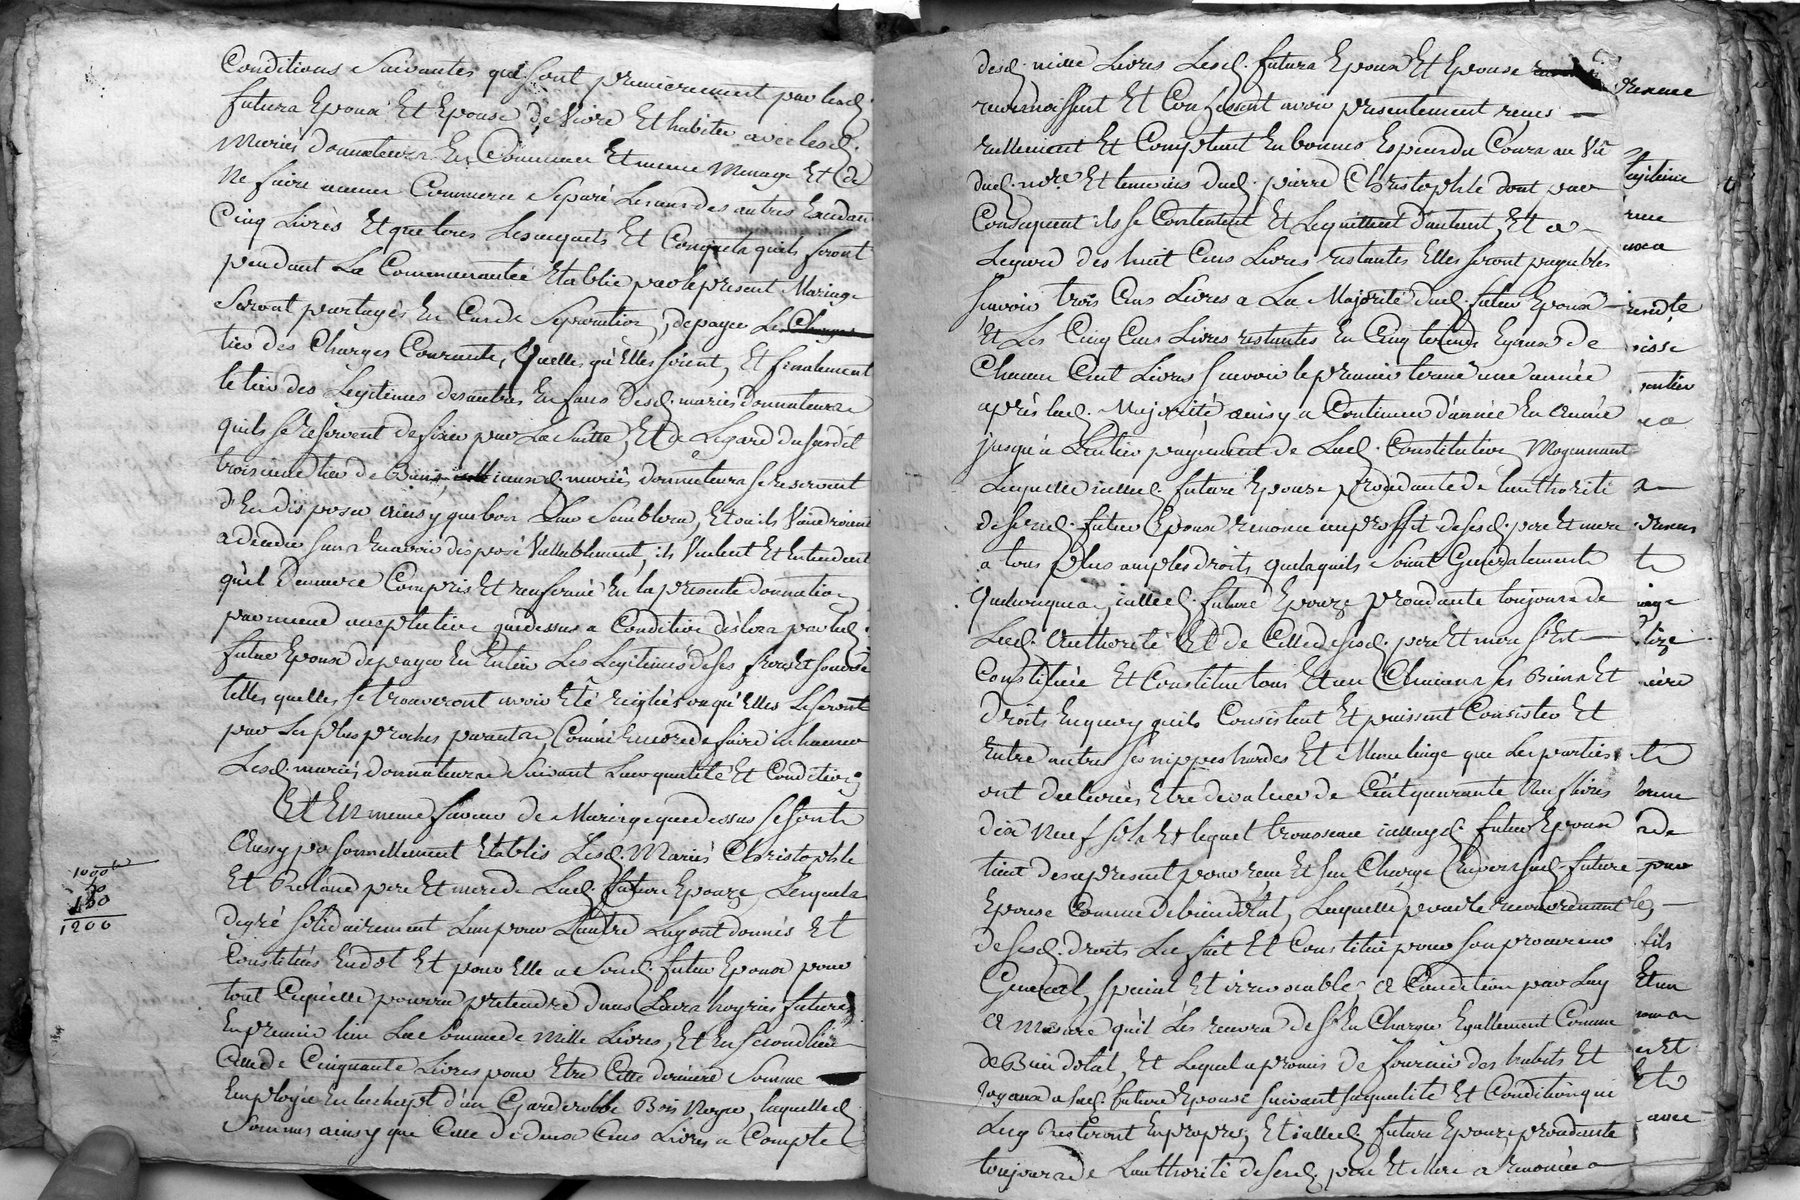 Conditions Suivantes qui sont premierement par lesd.
futurs Epoux Et Epouse de Vivre Et habiter avec lesd.
Mariés donnateurs En Commun Et meme Menage Et de
Ne faire aucun Commerce Séparé Les uns des autres Excedant
Cinq Livres Et que tous Les acquets Et Conquets qu'ils feront
pendant La Communauté Etablie par le present Mariage
Seront partagés En Cas de Separation, de payer Le Charges
tier des Charges Courante, Quelles qu'Elles soient, Et finalement
le tier des Legitimes des autres Enfans desd. mariés donnateurs
qu'ils se reservent de fixer par La Suitte, Et a Legard du susdit
troisieme tier de Biens, iceux d. mariés donnateurs se reservent
d'En disposer ainsy que bon Leur Semblera, Et ou ils Viendroient
a deceder sans En avoir disposé Vallablement, ils Veulent Et Entendent
qu'il demeure Compris Et renfermé En la presente donnation
par meme acceptation que dessus a Condition dès lors par led.
futur Epoux de payer En Entier Les Legitimes de ses freres Et soeurs
telles quelles se trouveront avoir Eté reiglées ou qu'Elles Le seront
par Les plus proches parants, Comme Encore de faire inhumer
Lesd. mariés donnateurs Suivant Leur qualité Et Condition;
Et En meme faveur de Mariage que dessus se sont
Aussy personnellement Etablis Lesd. Mariés Christophle
Et Roland pere Et mere de Lad. future Epouze Lesquels
de gré solidairement L'un pour L'autre Luy ont donnés Et
Constitués En dot Et pour Elle a Sond. futur Epoux pour
tout Ce qu'elle pourra pretendre dans Leurs hoyries futures
En premier lieu La Somme de Mille Livres, Et En second lieu
Celle de Cinquante Livres pour Etre Cette derniere Somme
Employée En Lachept d'un Garderobbe Bois Noyer, laquelle d.
Sommes ainsy que Celle de deux Cens Livres a Compte
1000 lt
50
150
1200
desd. mille Livres Lesd. futurs Epoux Et Epouse
reconnoissent Et Confessent avoir presentement reçus
reellement Et Comptant En bonnes Especes du Cours au Vû
dud. nore. Et temoins dud. pierre Christophle dont par
Consequent ils se Contentent Et Lequittent d'autant, Et a
Legard des huit Cens Livres restantes Elles seront payables
Sçavoir trois Cens Livres a La Majorité dud. futur Epoux
Et Les Cinq Cens Livres restantes En Cinq termes Egaux de
Chacun Cent Livres Sçavoir le premier terme une année
après lad. Majorité, ainsy a Continuer d'année En année
jusqu'à L'entier payement de Lad. Constitution, Moyennant
Laquelle icelle d. future Epouze procedante de Lauthorité
de Sond. futur Epoux renonce au proffit de sesd. pere Et mere
a tous plus amples droits quels qu'ils soient Generalement
Quelconques, icelle d. future Epouze procedante toujours de
Lad. Authorité Et de Celle de sesd. pere Et mere s'Est
Constituée Et Constitue tous Et un Chacuns ses Biens Et
droits En quoy qu'ils Consistent Et puissent Consister Et
Entre autres ses nippes hardes Et Menu linge que Les parties
ont declarées Etre de valeur de Cent quarante Neuf livres
dix Neuf sols Et lequel trousseau iceluy d. futur Epoux
tient des a present pour reçu Et s'en Charge Envers sad. future
Epouse Comme de bien dotal, Laquelle pour le recouvrement
de sesd. droits Le fait Et Constitue pour son procureur
General, special Et irrevocable a Condition par Luy
a Mesure qu'il Les recevra de s'En Charger Egallement Comme
de Bien dotal, Et Lequel a promis de fournir des habits Et
Joyaux a Sad. future Epouse suivant sa qualité Et Condition qui
Luy resteront En propre, Et icelle d. future Epouze procedante
toujours de Lauthorité de sesd. pere Et Mere a renoncé a
avec